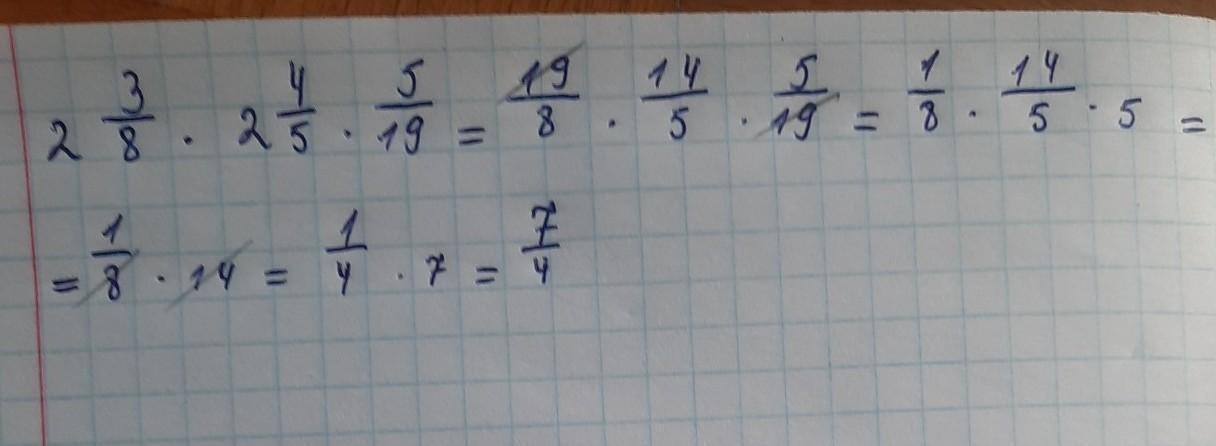 2 3/8 · 2 4/5 · 5/19 = 19/8 · 14/5 · 5/19 = 1/8 · 14/5 · 5 =
= 1/8 · 14 = 1/4 · 7 = 7/4